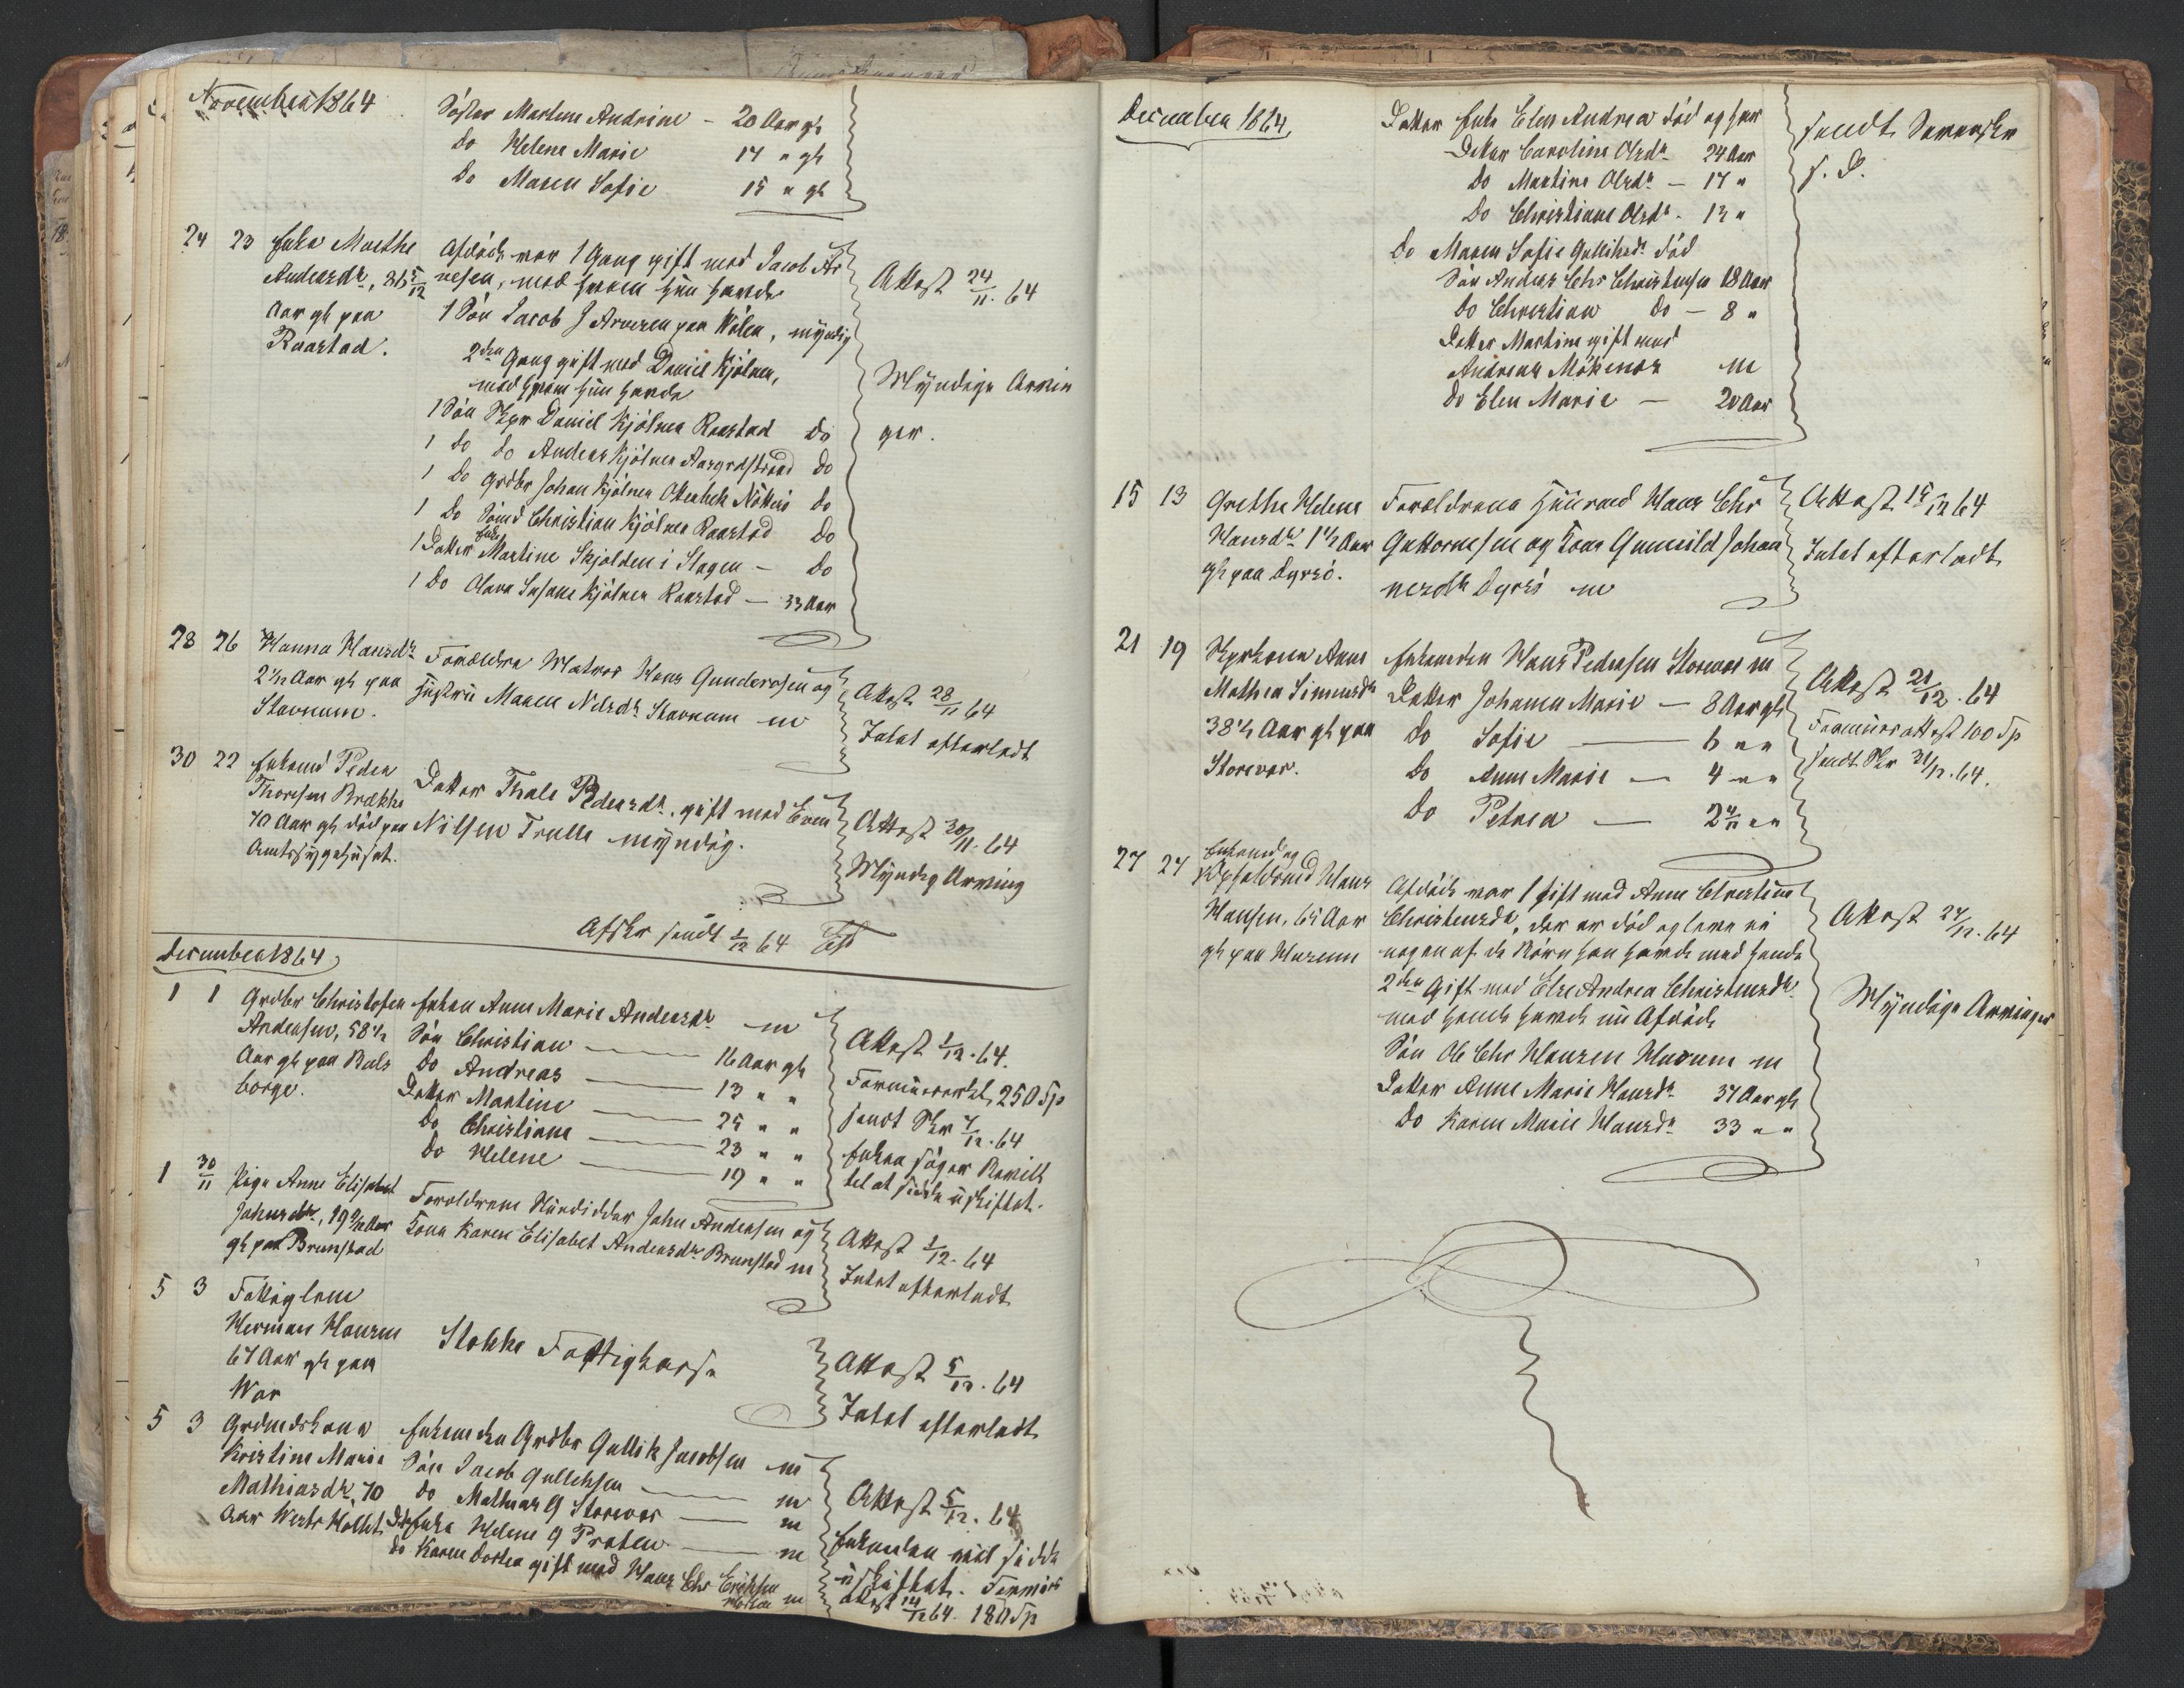 November 1864
Søster Marlene Andrine - 20 Aar gl
do Helene Marie 17 " gl
do Maren Sofie 15 " gl
24 23 Enke Marthe
Andersdr, 86 5/12
Aar gl paa
Raastad.
Afdøde var 1 Gang gift med Jacob Ar
nesen, med hvem hun havde
1 Søn Jacob J Arnesen paa Wølen, myndig
2den Gang gift med Daniel Kjølner,
med hvem hun havde
1 Søn Skpr Daniel Kjølner Raastad do
1 do do Anders Kjølner Aasgrdstrand do
1 do Grdbr Johan Kjølner Ottenbek Nøtterø do
1 do Sømd Christian Kjølner Raastad do
1 Datter Enke Martine Skjolden i Slagen - do
1 do Olava Susane Kjølner Raastad - 33 Aar
Attest 24/11. 64
Myndige Arvin
ger.
28 26 Hanna Hansdr
2 1/12 Aar gl paa
Stavnum.
Forældre Matros Hans Gundersen og
Hustru Maren Nilsdr Stavnum m
Attest 28/11 64
Intet efterladt
30 22 Enkemd Peder
Thoresen Brække
70 Aar gl død paa
Amtssygehuset.
Datter Thale Pedersdr. gift med Even
Nilsen Trulle myndig.
Attest 30/11. 64
Myndig Arving
Afskr sendt 1/12 64
December 1864
1 1 Grdbr Christofer
Andersen, 58 1/2
Aar gl paa Bals
borge.
Enken Anne Marie Andersdr m
Søn Christian 16 Aar gl
do Andreas 13 " "
Datter Martine 25 " "
do Christiane 23 " "
do Helene 19 " "
Attest 1/12. 64.
Formuesattest 250 Sp
sendt Skr 7/12. 64
Enken søger Bevill
til at sidde uskiftet.
1 30/11 Pige Anne Elisabet
Johnsdtr, 19 Aar
gl paa Brunstad
Foreldrene Husvidder John Andersen og
Kone Karen Elisabet Andersdr Brunstad m
Attest 1/12. 64
Intet efterladt
5 3 Fattiglem
Herman Hansen
67 Aar gl paa
Wår
Stokke Fattigkasse
Attest 5/12. 64
Intet efterladt
5 3 Grdmdskone
Kristine Marie
Mathiasdr, 70
Aar Westr Hollet
Enkemden Grdbr Gullik Jacobsen m
Søn Jacob Gulliksen m
do Mathias G Storevar m
Dtr Enke Helene G Praten m
do Karen Dortea gift med Hans Chr Eriksen
m
Attest 5/12. 64
Enkemden vil sidde
uskiftet. Formues
attest 14/12 64. 180 Sp
December 1864
Datter Enke Elen Andrea død og har
Datter Caroline Olsdr 24 Aar
do Martine Olsdr - 17 "
do Christiane Olsdr - 13 "
do Maren Sofie Gulliksdr død
Søn Anders Chr Christensen 18 Aar
do Christian do - 8 "
Datter Martine gift med
Andreas Mökenes m
do Elen Marie - 20 Aar
sendt Sorenskr
s. D.
15 13 Grethe Helene
Hansdr 1 1/2 Aar
gl paa Dyrsö.
Forældrene Husmd Hans Chr
Guttormsen og Kone Gunnild Johan
nesdtr Dyrsö m
Attest 15/12 64
Intet efterladt
21 19 Skprkone Anne
Mathea Simensdr
38 1/2 Aar gl paa
Storevar.
Enkemden Hans Pedersen Storevar m
Datter Johanna Marie - 8 Aar gl
do Sofie 6 " "
do Anne Marie - 4 " "
do Petrea - 2 " "
Attest 21/12. 64
Formuesattest 100 Sp
sendt Skr 31/12. 64.
27 24 Enkemd og
Opholdsmd Hans
Hansen, 65 Aar
gl paa Husum
Afdøde var 1 gift med Anne Christine
Christensdr, der er død og leve ei
nogen af de Børn han havde med hende
2den Gift med Else Andrea Christensdr
med hende havde nu Afdøde
Søn Ole Chr Hansen Husum m
Datter Anne Marie Hansdr 37 Aar gl
do Karen Marie Hansdr 33 " "
Attest 27/12. 64
Myndige Arvinger